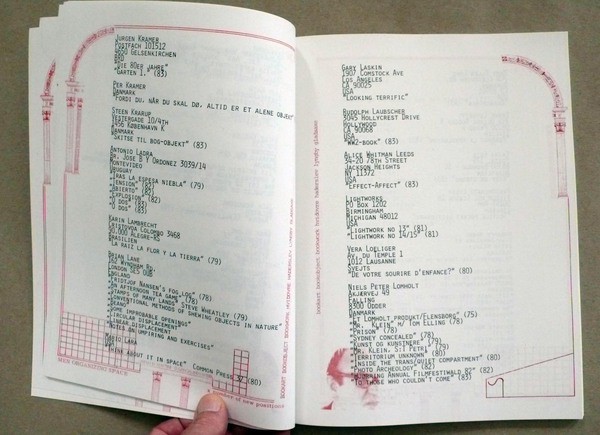 JURGEN KRAMER
POSTFACH 101512
4650 GELSENKIRCHEN
BRD
"DIE 80ER JAHRE"
"GARTEN 1." (83)
PER KRAMER
DANMARK
"FORDI DU, NÅR DU SKAL DØ, ALTID ER ET ALENE OBJEKT"
STEEN KRARUP
VESTERGADE 10/4TH
1456 KØBENHAVN K
DANMARK
"SKITSE TIL BOG-OBJEKT" (83)
ANTONIO LADRA
DR. JOSE B Y ORDONEZ 3039/14
MONTEVIDEO
URUGUAY
"TRAS LA ESPESA NIEBLA" (79)
"TENSION" (82)
"ABIERTO" (82)
"EXPLOSION" (82)
"X DOS" (83)
"X DOS" (83)
KARIN LAMBRECHT
CRISTOVOA COLOMBO 3468
90.000 ALEGRE-RS
BRASILIEN
"LA RAIZ LA FLOR Y LA TIERRA" (79)
BRIAN LANE
LONDON
ENGLAND
"FRIDTJOF NANSEN'S FOG LOG" (78)
"AN AFTERNOON TEA GAME" (78)
"STAMPS OF MANY LANDS" STEVE WHEATLEY (79)
"CONVENTIONAL METHODS OF SHEWING OBJECTS IN NATURE"
"GRAVE"
"SOME IMPROBABLE OPENINGS"
"CIRCULAR DISPLACEMENT"
"NOTES ON UMPIRING AND EXERCISES"
DAVID LARA
USA
"THINK ABOUT IT IN SPACE" COMMON PRESS 37 (80)
MER ORGANIZING SPACE
GARY LASKIN
1907 COMSTOCK AVE
LOS ANGELES
CA 90025
USA
"LOOKING TERRIFIC"
RUDOLPH LAUBSCHER
3045 HOLLYCREST DRIVE
HOLLYWOOD
CA 90068
USA
"WWZ-BOOK" (83)
ALICE WHITMAN LEEDS
34-20 78TH STREET
JACKSON HEIGHTS
NY 11372
USA
"EFFECT-AFFECT" (83)
LIGHTWORKS
PO BOX 1202
BIRMINGHAM
MICHIGAN 48012
USA
"LIGHTWORK NO 13" (81)
"LIGHTWORK NO 14/15" (81)
VERA LOELIGER
AV. DU TEMPLE 1
1012 LAUSANNE
SVEJTS
"DE VOTRE SOURIRE D'ENFANCE?" (80)
NIELS PETER LOMHOLT
AKJÆRVEJ 49
FALLING
8300 ODDER
DANMARK
"ET LOMHOLT PRODUKT/FLENSBORG" (75)
"MR. KLEIN" M/ TOM ELLING (78)
"PRISON" (78)
"SYDNEY CONCEALED" (78)
"KUNST OG KUNSTNERE" (79)
"MR. KLEIN, S:T PETRI" (79)
"TERRITORIUM UNKNOWN" (80)
"INSIDE THE TRANS/QUIET COMPARTMENT" (80)
"PHOTO ARCHEOLOGY" (82)
ANNUAL FILMFESTIWALD 82" (82)
"TO THOSE WHO COULDN'T COME" (83)
of new positions